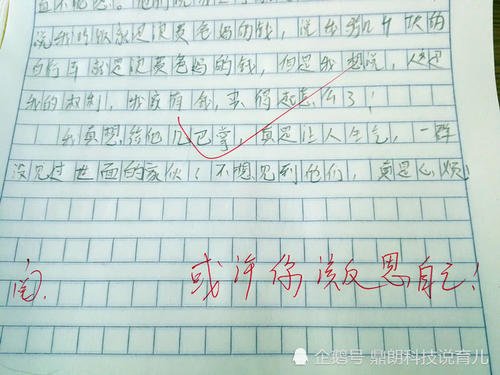 说我吃饭就是浪费爸妈的钱，说我骑几千块的
自行车就是浪费爸妈的钱，但是我想说，这是
我的权利，我家有钱，买得起怎么了！
我真想给他几巴掌，真是让人生气，一群
没见过世面的家伙！不想见到他们，真是心烦！
或许你该反恩自己！
企鹅号 鼎朗科技说育儿